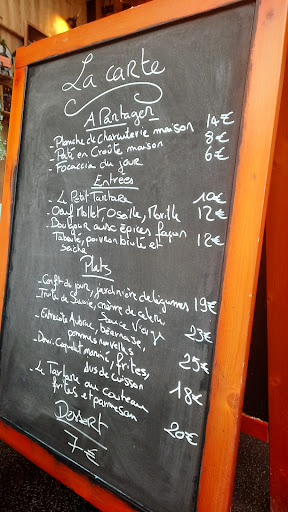 La carte
A Partager
- Planche de charcuterie maison 14€
- Pâté en Croûte maison 8€
- Focaccia du jour 6€
Entrées
- Le Petit Tartare 10€
- Oeuf Mollet, Oseille, Morille 12€
- Boulgour aux épices façon
Taboulé, poireau brulé et 12€
seiche
Plats
- Confit du jour, jardinière de légumes 19€
- Truite de Savoie, crème de céleri,
Sauce 23€
- Entrecôte Aubrac, béarnaise,
pommes nouvelles 25€
- Demi. Coquelet mariné, frites,
Jus de cuisson 18€
- Le Tartare au couteau
frites et parmesan 20€
Dessert
7€